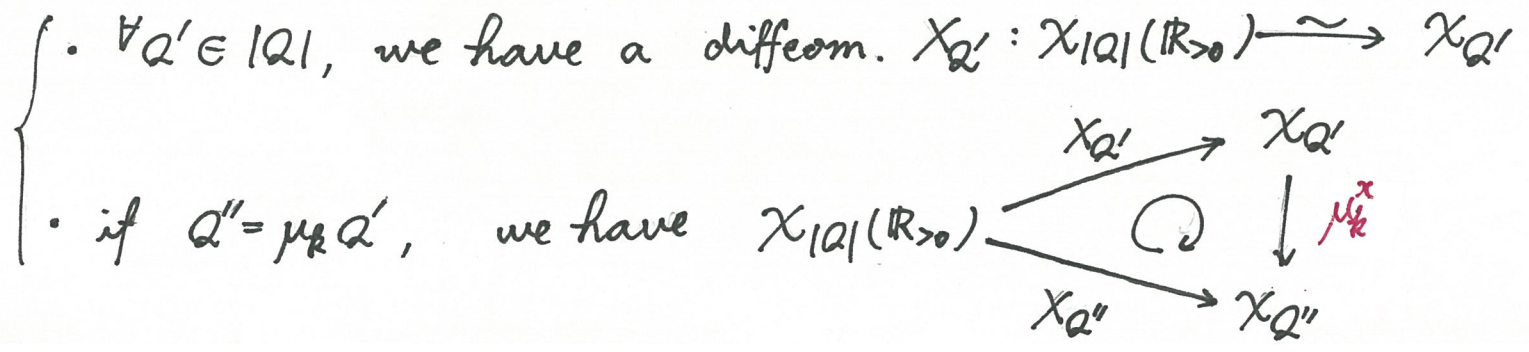 • ∀Q' ∈ |Q|, we have a diffeom. X_{Q'} : 𝒳_{|Q|}(ℝ_{>0}) ⥲ 𝒳_{Q'}
X_{Q'} 𝒳_{Q'}
• if Q'' = μ_k Q', we have 𝒳_{|Q|}(ℝ_{>0}) ↻ ↓ μ_k^x
X_{Q''} 𝒳_{Q''}